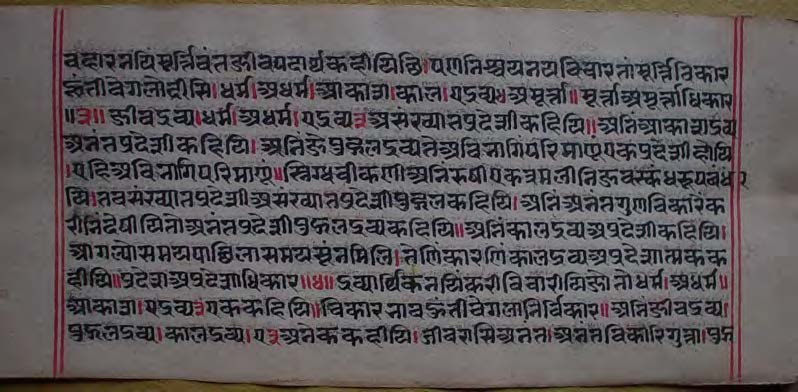 वहारनयिंमूर्त्तिवंतजीवपदार्थकहीयिछि।पणनिश्चयनयविचारतांमूर्त्तिविकार
हूंतीवेगलोहीमि।धर्म।अधर्म।आकाश।काल।एद्रव्य४अमूर्त्ता॥मूर्त्ताअमूर्त्ताधिकार
॥३॥जीवद्रव्य।धर्म।अधर्म।एद्रव्य३असंख्यातप्रदेशीकहियि॥अनिंआकाशद्रव्य
अनंतप्रदेशीकहियि।अनिंजेपुद्गलद्रव्यतेअविभागिपरिमाणूएकप्रदेशीहोयि
।एहिअविभागिपरिमाणूं॥स्निग्धचीकणीअनिंरुखीएकत्रमलीनिंजवस्कंधरूपबंधर
यि।तवसंख्यातप्रदेशीअसंख्यातप्रदेशीपुद्गलकहियि।अनिंअनंतगुणविकारिंक
रीनिंदेषीयितोअनंतप्रदेशीपुद्गलद्रव्यकहियि॥अनिंकालद्रव्यअप्रदेशीकहियि।
आगल्योसमयपाछिलासमयसूंनमिलि।तेणिंकारणिंकालद्रव्यअप्रदेशात्मकक
हीयि॥प्रदेशअप्रदेशाधिकार॥४॥द्रव्यार्थिकनयिंकरीविचारीयिजोतोधर्म।अधर्म॥
आकाश।एद्रव्य३एककहियि॥विकारभावहूंतीवेगलानिर्विकार॥अनिंजीवद्रव्य।
पुद्गलद्रव्य।कालद्रव्य।ए३अनेककहीयि।जीवरासिअनंत।अनंतविकारिगुन्ना।पुद्ग